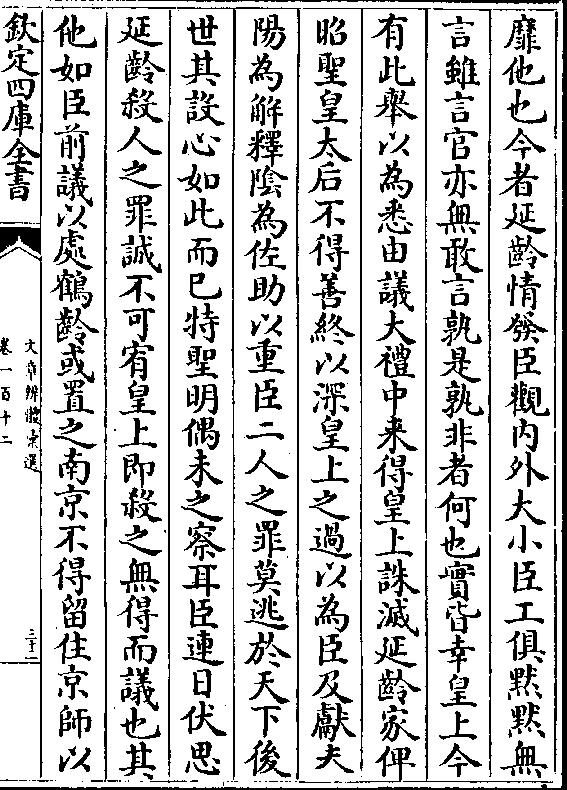 靡他也今者延齡情發臣觀内外大小臣工俱黙黙無
言雖言官亦無敢言孰是孰非者何也實皆幸皇上今
有此舉以為悉由議大禮中来得皇上誅滅延齡家俾
昭聖皇太后不得善終以深皇上之過以為臣及獻夫
陽為解釋陰為佐助以重臣二人之罪莫逃於天下後
世其設心如此而已特聖明偶未之察耳臣連日伏思
延齡殺人之罪誠不可宥皇上即殺之無得而議也其
他如臣前議以處鶴齡或置之南京不得留住京師以
欽定四庫全書
文章辨體彙選
卷一百十二
三十二